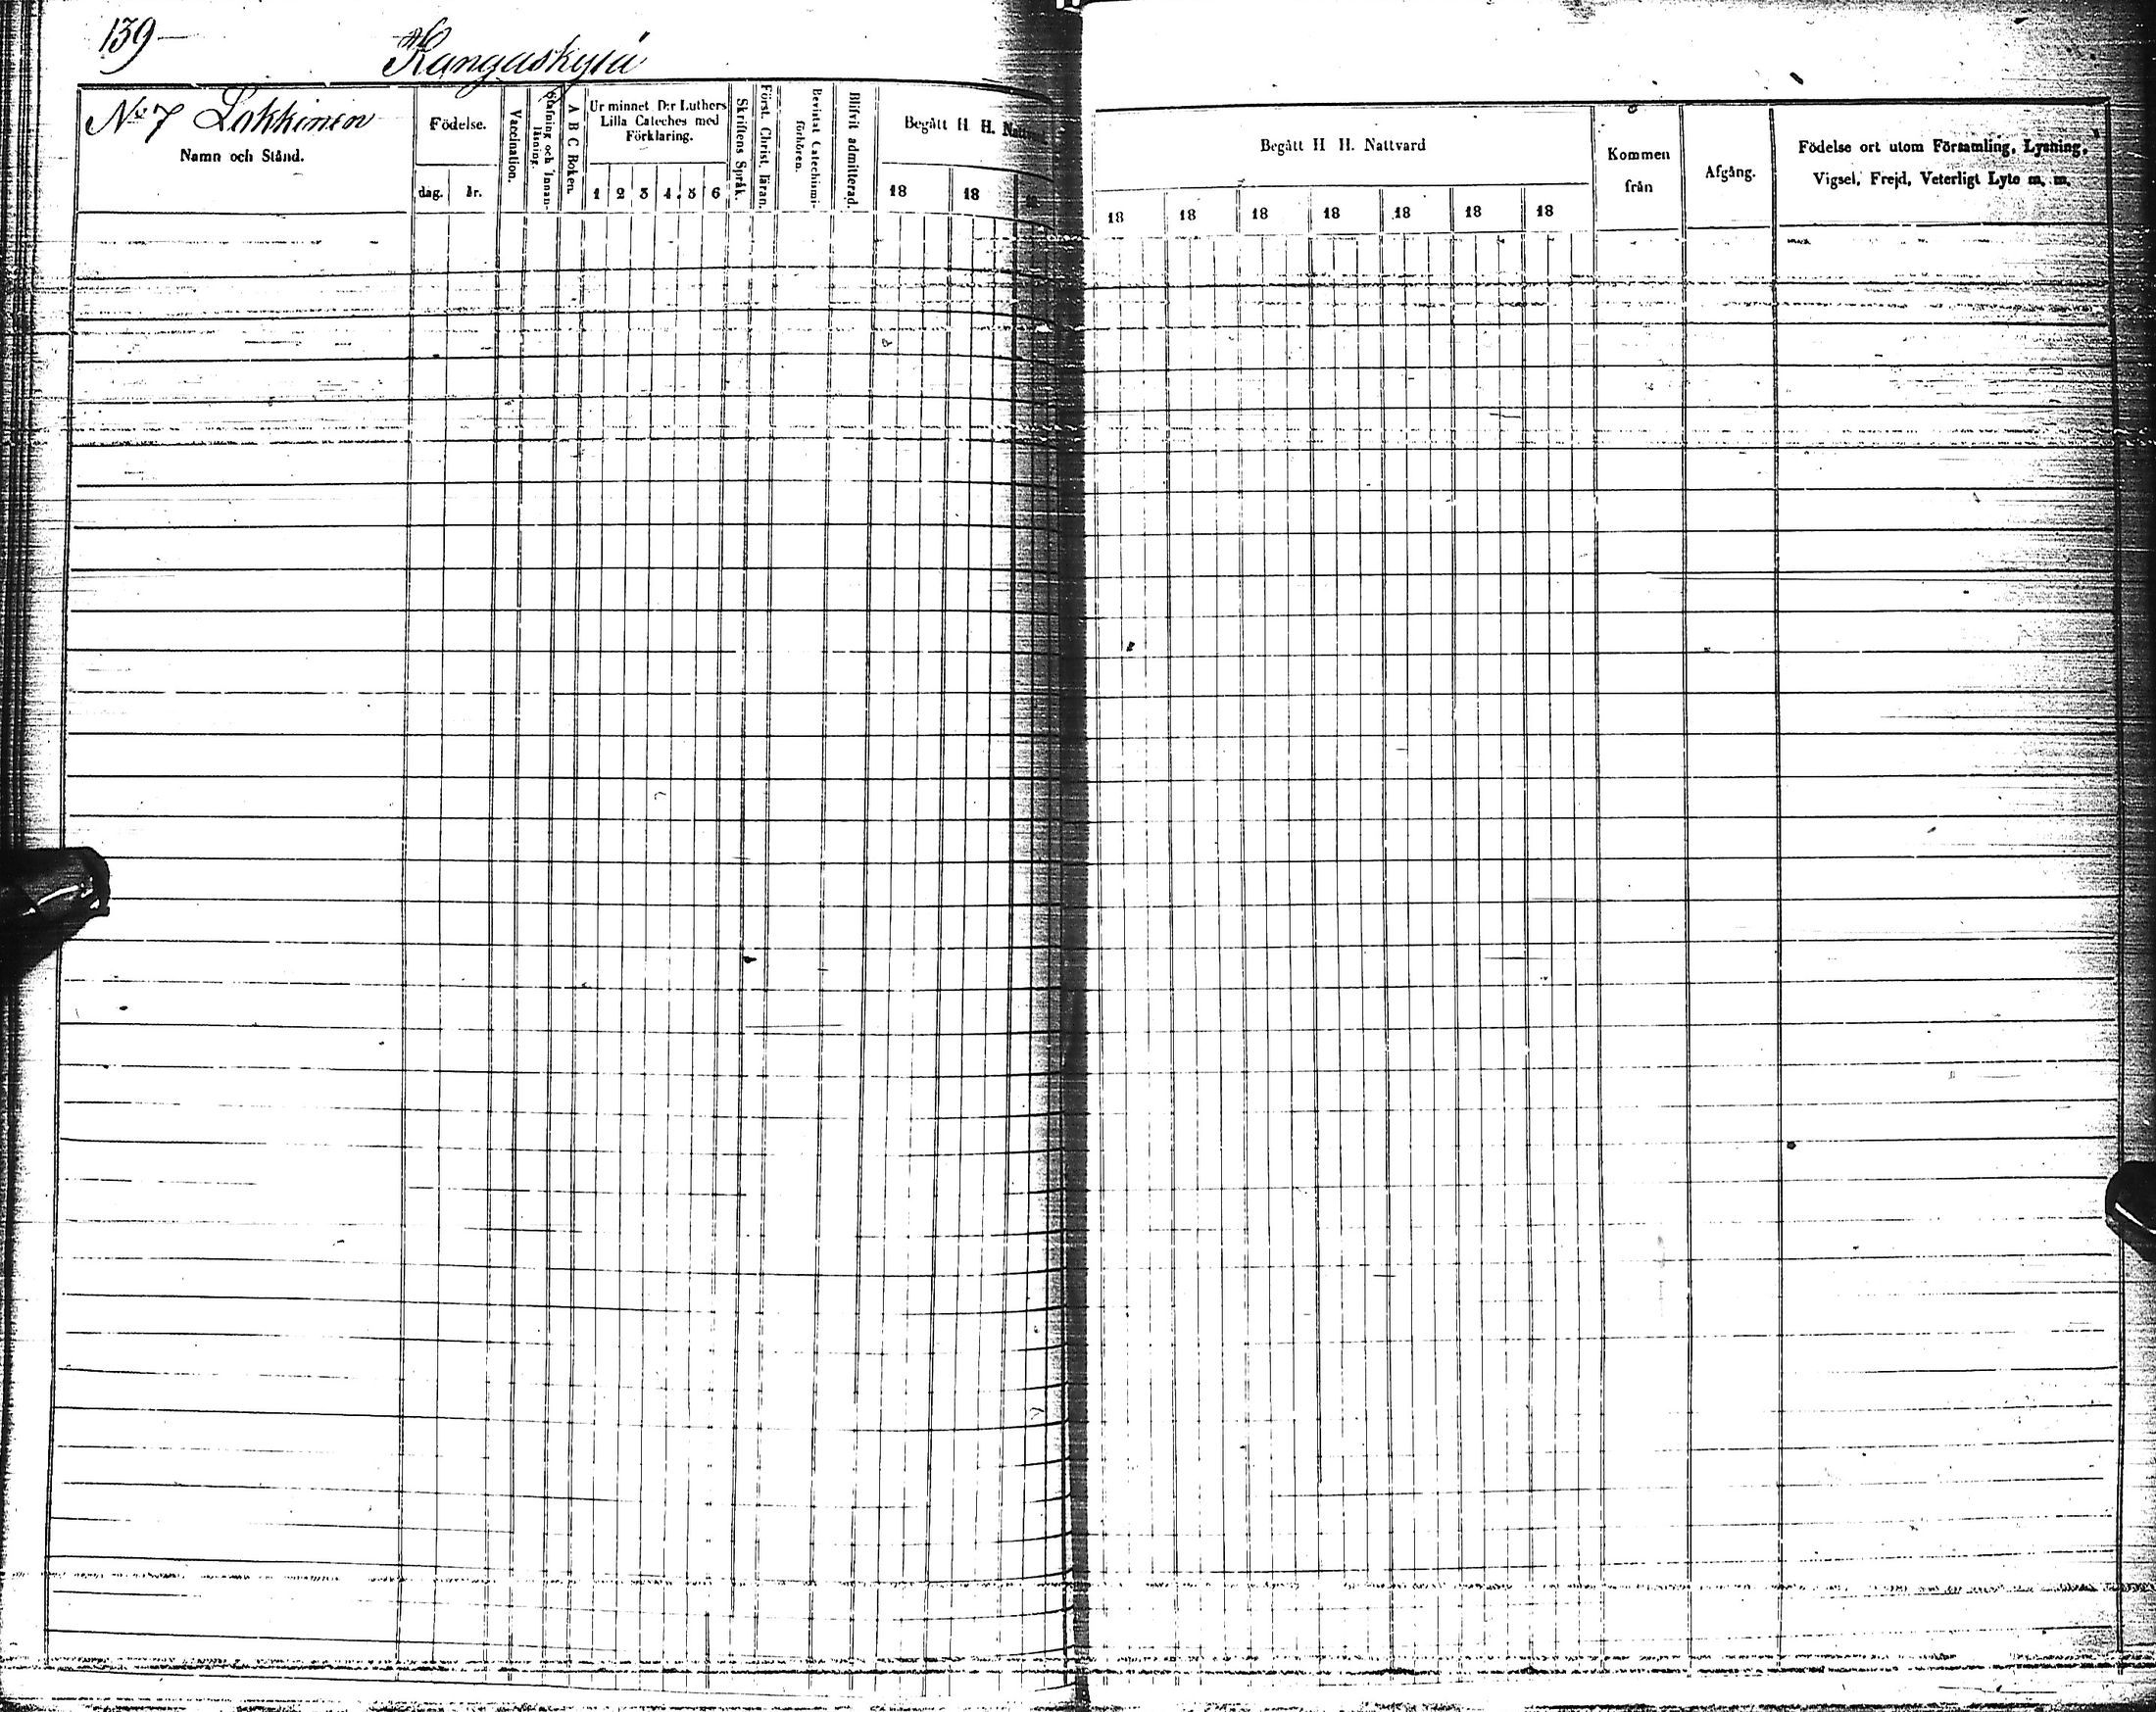 139
Kangaskylä
No 7 Lakkinen
Namn och Stånd.
Födelse.
dag.
år.
Vaccination.
Stafning och Innan-
läsning.
A B C Boken.
Ur minnet D:r Luthers
Lilla Cateches med
Förklaring.
1 2 3 4 5 6
Skriftens Språk.
Först. Christ. läran.
Bevistat Catechismi-
förhören.
Blifvit admitterad.
Begått H H. Nattvard
18 18
Begått H H. Nattvard
18 18 18 18 18 18 18
Kommen
från
Afgång.
Födelse ort utom Församling, Lysning,
Vigsel, Frejd, Veterligt Lyte m. m.